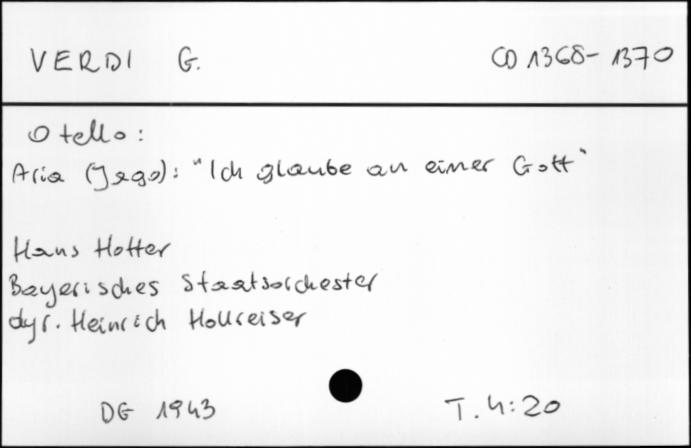 VERDI G. CD 1368-1370
Otello:
Aria (Jago): "Ich glaube an einer Gott"
Hans Hotter
Bayerisches Staatsorchester
dyr. Heinrich Hollreiser
DG 1943 T. 4:20